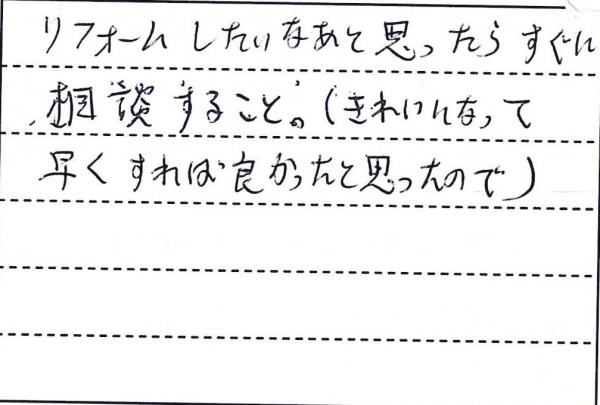 リフォームしたいなあと思ったらすぐに
相談すること。（きれいになって
早くすれば良かったと思ったので）